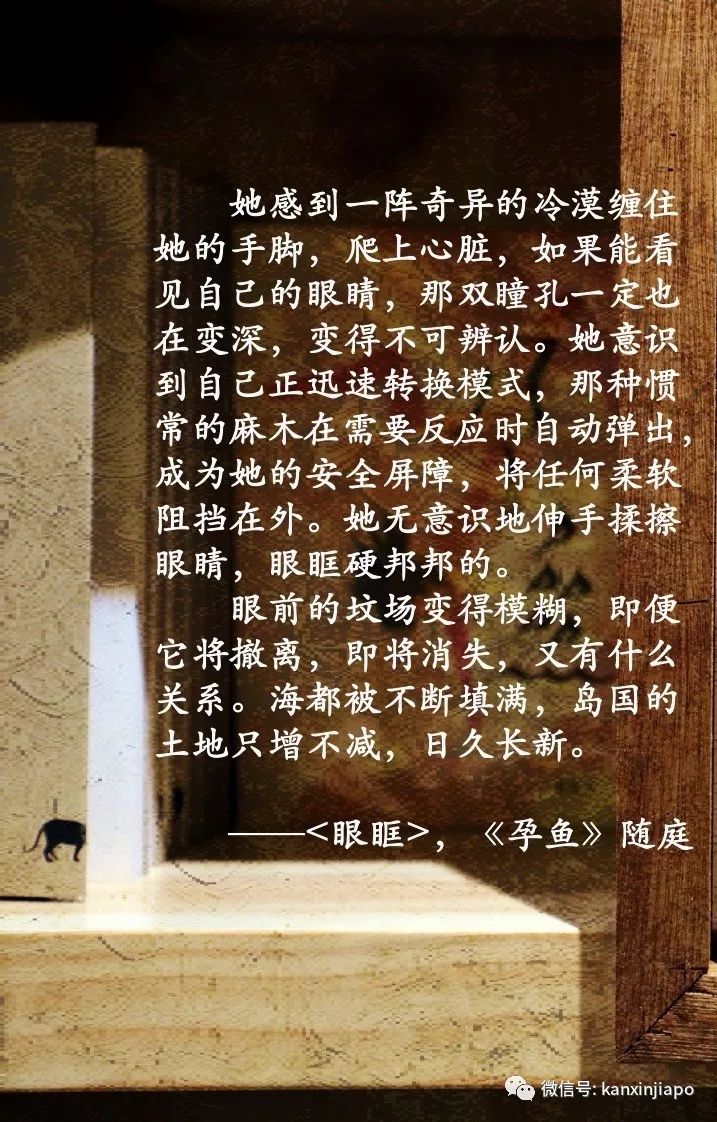 她感到一阵奇异的冷漠缠住
她的手脚，爬上心脏，如果能看
见自己的眼睛，那双瞳孔一定也
在变深，变得不可辨认。她意识
到自己正迅速转换模式，那种惯
常的麻木在需要反应时自动弹出，
成为她的安全屏障，将任何柔软
阻挡在外。她无意识地伸手揉擦
眼睛，眼眶硬邦邦的。
眼前的坟场变得模糊，即便
它将撤离，即将消失，又有什么
关系。海都被不断填满，岛国的
土地只增不减，日久长新。
——<眼眶>，《孕鱼》随庭
微信号: kanxinjiapo